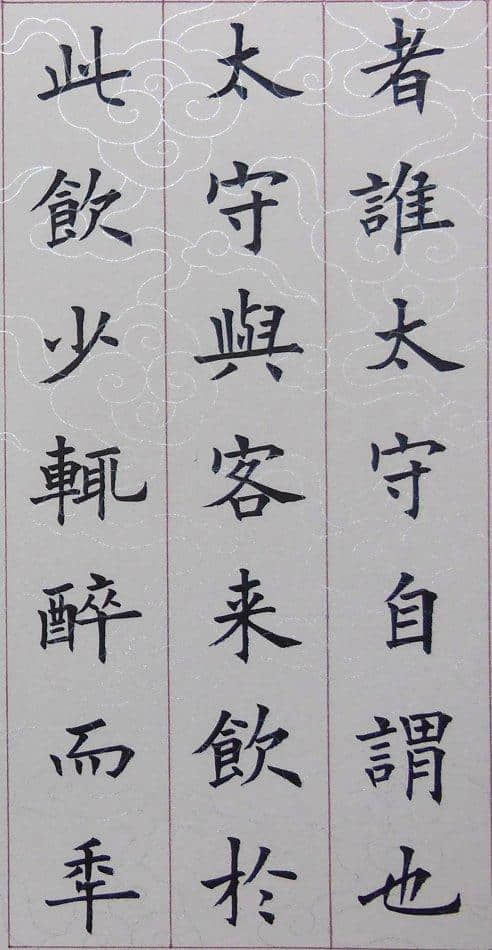 者誰太守自謂也
太守與客来飲於
此飲少輒醉而年